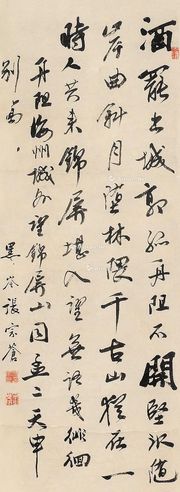 酒罷出城郭孤舟阻不開堅冰隨
岸曲斜月墮林隈千古山猶在一
時人共來錦屏堪入望無語幾徘徊
舟阻海州城外望錦屏山同孟二天中
別憲
黑峯張宗蒼